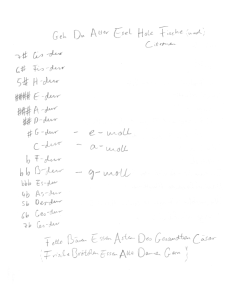 Geh Du Alter Esel Hole Fische
7# Cis-dur
6# Fis-dur
5# H-dur
#### E-dur
### A-dur
## D-dur
# G-dur - e-moll
C-dur - a-moll
b F-dur
bb B-dur - g-moll
bbb Es-dur
4b As-dur
5b Des-dur
6b Ges-dur
7b Ces-dur
Essen Asten Des Gesamten
Frische Brötchen Essen Alte Damen Gern